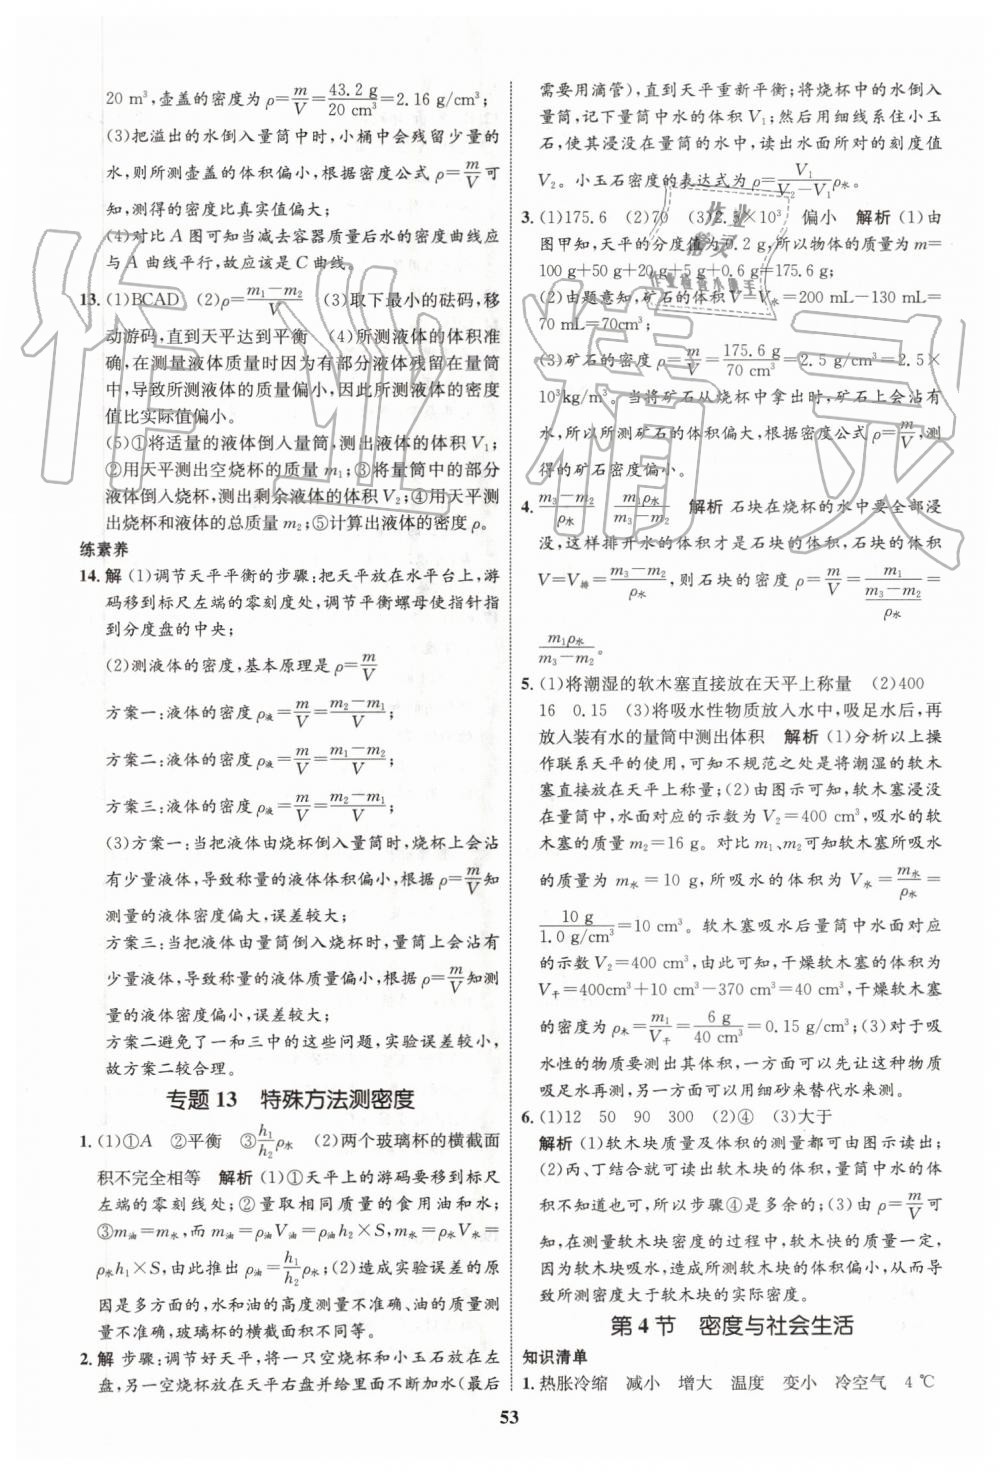 20 m³,壶盖的密度为ρ=m/V=43.2 g/20 cm³=2.16 g/cm³;
(3)把溢出的水倒入量筒中时,小桶中会残留少量的
水,则所测壶盖的体积偏小,根据密度公式ρ=m/V可
知,测得的密度比真实值偏大;
(4)对比A图可知当减去容器质量后水的密度曲线应
与A曲线平行,故应该是C曲线。
13.(1)BCAD (2)ρ=(m₁-m₂)/V (3)取下最小的砝码,移
动游码,直到天平达到平衡 (4)所测液体的体积准
确,在测量液体质量时因为有部分液体残留在量筒
中,导致所测液体的质量偏小,因此所测液体的密度
值比实际值偏小。
(5)①将适量的液体倒入量筒,测出液体的体积V₁;
②用天平测出空烧杯的质量m₁;③将量筒中的部分
液体倒入烧杯,测出剩余液体的体积V₂;④用天平测
出烧杯和液体的总质量m₂;⑤计算出液体的密度ρ。
练素养
14.解 (1)调节天平平衡的步骤:把天平放在水平台上,游
码移到标尺左端的零刻度处,调节平衡螺母使指针指
到分度盘的中央;
(2)测液体的密度,基本原理是ρ=m/V
方案一:液体的密度ρ液=m/V=(m₂-m₁)/V;
方案二:液体的密度ρ液=m/V=(m₁-m₂)/V;
方案三:液体的密度ρ液=m/V=(m₂-m₁)/V;
(3)方案一:当液体由烧杯倒入量筒时,烧杯上会沾
有少量液体,导致称量的液体体积偏小,根据ρ=m/V知
测量的液体密度偏大,误差较大;
方案三:当把液体由量筒倒入烧杯时,量筒上会沾有
少量液体,导致称量的液体质量偏小,根据ρ=m/V知测
量的液体密度偏小,误差较大;
方案二避免了一和三中的这些问题,实验误差较小,
故方案二较合理。
专题13 特殊方法测密度
1.(1)①A ②平衡 ③h₁/h₂ρ水 (2)两个玻璃杯的横截面
积不完全相等 解析 (1)①天平上的游码要移到标尺
左端的零刻线处;②量取相同质量的食用油和水;
③m油=m水,而m油=ρ油V油=ρ油h₂×S,m水=ρ水V水=
ρ水h₁×S,由此推出ρ油=h₁/h₂ρ水;(2)造成实验误差的原
因是多方面的,水和油的高度测量不准确、油的质量测
量不准确、玻璃杯的横截面积不同等。
2.解 步骤:调节好天平,将一空烧杯和小玉石放在左
盘,另一空烧杯放在天平右盘并给里面不断加水(最后
需要用滴管),直到天平重新平衡;将烧杯中的水倒入
量筒,记下量筒中水的体积V₁;然后用细线系住小玉
石,使其浸没在量筒的水中,读出水面所对的刻度值
V₂。小玉石密度的表达式为ρ=V₁/(V₂-V₁)ρ水。
3.(1)175.6 (2)70 (3)2.5×10³ 偏小 解析 (1)由
图甲知,天平的分度值为0.2 g,所以物体的质量为m=
100 g+50 g+20 g+5 g+0.6 g=175.6 g;
(2)由题意知,矿石的体积V=V水=200 mL-130 mL=
70 mL=70cm³;
(3)矿石的密度ρ=m/V=175.6 g/70 cm³=2.5 g/cm³=2.5×
10³kg/m³。当将矿石从烧杯中拿出时,矿石上会沾有
水,所以所测矿石的体积变大,由密度公式ρ=m/V,测
得的矿石密度偏小。
4.(m₃-m₂)/ρ水 m₁ρ水/(m₃-m₂) 解析 石块在烧杯的水中要全部浸
没,这样排开水的体积才是石块的体积,石块的体积
V=V排=(m₃-m₂)/ρ水,则石块的密度ρ=m/V=m₁/((m₃-m₂)/ρ水)=
m₁ρ水/(m₃-m₂)。
5.(1)将潮湿的软木塞直接放在天平上称量 (2)400
16 0.15 (3)将吸水性物质放入水中,吸足水后,再
放入装有水的量筒中测出体积 解析 (1)分析以上操
作联系天平的使用,可知不规范之处是将潮湿的软木
塞直接放在天平上称量;(2)由图示可知,软木塞浸没
在量筒中,水面对应的示数为V₂=400 cm³,吸水的软
木塞的质量m₂=16 g。对比m₁、m₂可知软木塞所吸水
的质量为m水=10 g,所吸水的体积为V水=m水/ρ水=
10 g/1.0 g/cm³=10 cm³。软木塞吸水后量筒中水面对应
的示数V₂=400 cm³,由此可知,干燥软木塞的体积为
V干=400cm³+10 cm³-370 cm³=40 cm³,干燥软木塞
的密度为ρ木=m₁/V干=6 g/40 cm³=0.15 g/cm³;(3)对于吸
水性的物质要测出其体积,一方面可以先让这种物质
吸足水再测,另一方面可以用细砂来替代水来测。
6.(1)12 50 90 300 (2)④ (3)大于
解析 (1)软木块质量及体积的测量都可由图示读出;
(2)丙、丁结合就可读出软木块的体积,量筒中水的体
积不知道也可,所以步骤④是多余的;(3)由ρ=m/V可
知,在测量软木块密度的过程中,软木快的质量一定,
因为软木块吸水,造成所测软木块的体积偏小,从而导
致所测密度大于软木块的实际密度。
第4节 密度与社会生活
知识清单
1.热胀冷缩 减小 增大 温度 变小 冷空气 4 ℃
53
作业精灵
作业
精灵
作业检查小助手